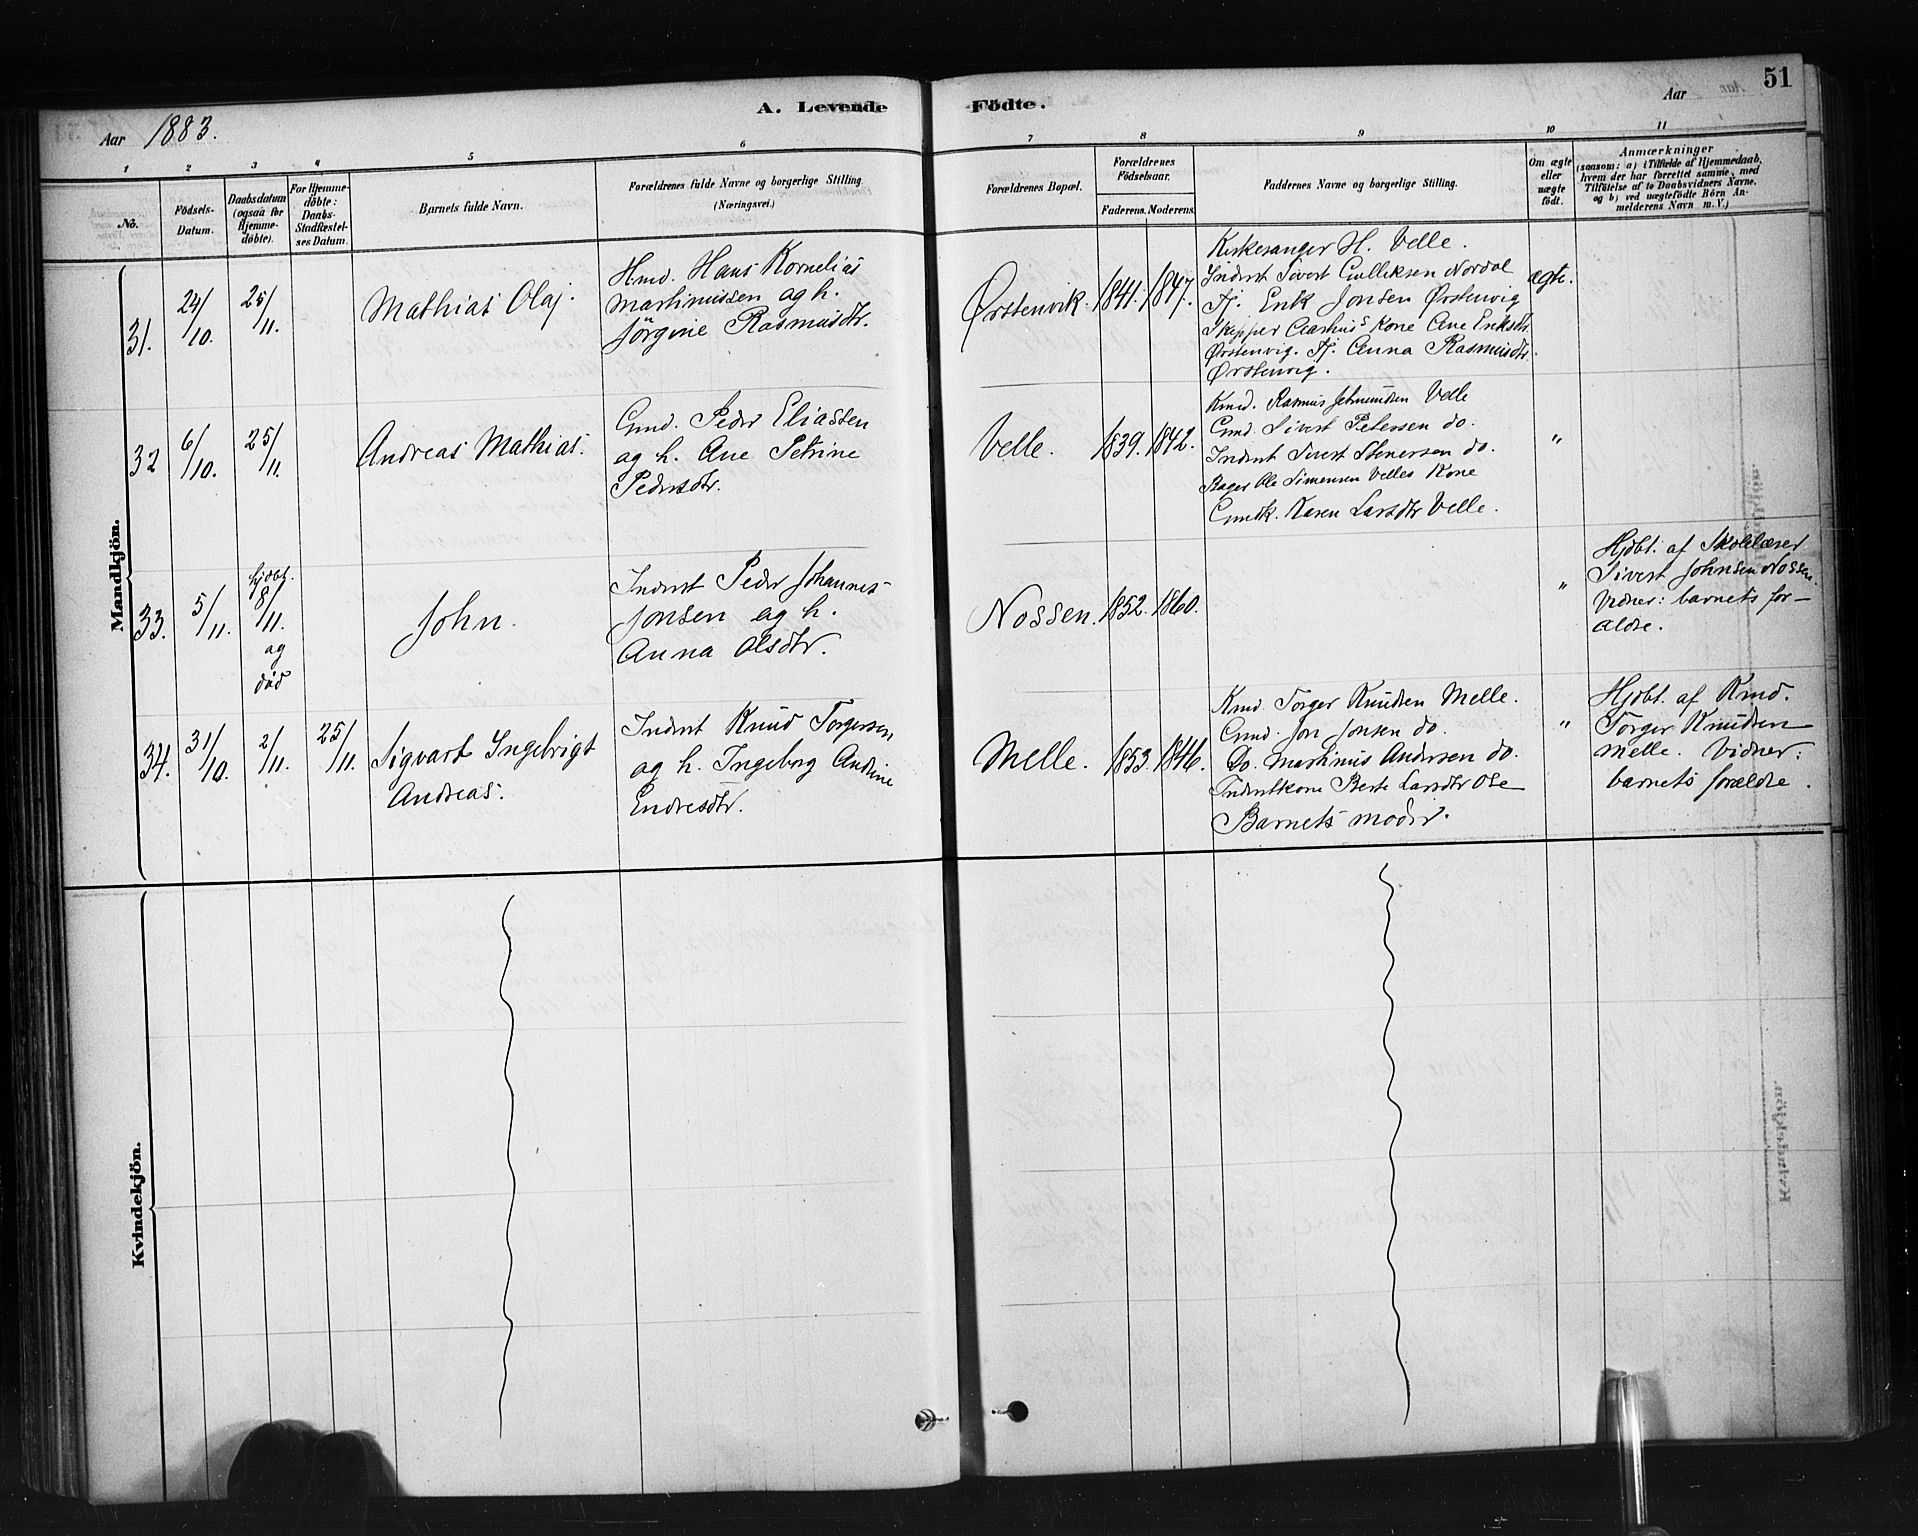 A. Levende Födte.
51
Aar 1883.
Aar
1 2 3 4 5 6 7 8 9 10 11
No.
Födsels-Datum.
Daabsdatum (ogsaa for Hjemme-döbte).
For Hjemme-döbte: Daabs-Stadfæstel-ses Datum.
Barnets fulde Navn.
Forældrenes fulde Navne og borgerlige Stilling.
(Næringsvei.)
Forældrenes Bopæl.
Forældrenes Födselsaar.
Faderens. Moderens.
Faddernes Navne og borgerlige Stilling.
Om ægte eller uægte födt.
Anmærkninger
(saasom: a) i Tilfælde af Hjemmedaab,
hvem der har forrettet samme, med
Tilföielse af to Daabsvidners Navne.
og b) ved uægtefödte Börn An-
melderens Navn m. V.)
Mandkjön.
31.
24/10.
25/11.
Mathias Olaj.
Hmd. Hans Kornelias
Martinussen og h.
Jörgine Rasmusdtr.
Ørstenvik.
1841.
1847.
Kirkesanger H. Velle.
Inderst Sivert Gulliksen Nordal
Fj. Erik Jonsen Ørstenvig
Skipper Aarhus's Kone Ane Eriksdtr.
Ørstenvig. Fj. Anna Rasmusdtr.
Ørstenvig.
ægte.
32
6/10.
25/11
Andreas Mathias.
Gmd. Peder Eliassen
og h. Ane Petrine
Pedersdtr.
Velle.
1839.
1842.
Kmd. Rasmus Velle
Gmd. Sivert Petersen do.
Inderst Sivert Stenersen do.
Bager Ole Simensen Velles Kone
Gmdk. Karen Larsdtr Velle.
"
33.
5/11.
hjdbt.
8/11.
og
död
John.
Inderst Peder Johannes-
Jonsen og h.
Anna Olsdtr.
Nossen.
1852.
1860.
"
Hjdbt. af Skolelærer
Sivert Johnsen Nossen.
Vidner: barnets for-
ældre.
34.
31/10.
2/11.
25/11.
Sigvart Ingebrigt
Andreas.
Inderst Knud Torgersen
og h. Ingeborg Andrine
Endresdtr.
Melle.
1853.
1846.
Kmd Torger Knudsen Melle.
Gmd. Jon Jonsen do.
Do. Martinus Andersen do.
Inderstkone Berte Larsdtr Ose
Barnets moder.
"
Hjdbt. af Kmd.
Torger Knudsen
Melle. Vidner:
barnets forældre.
Kvindekjön.